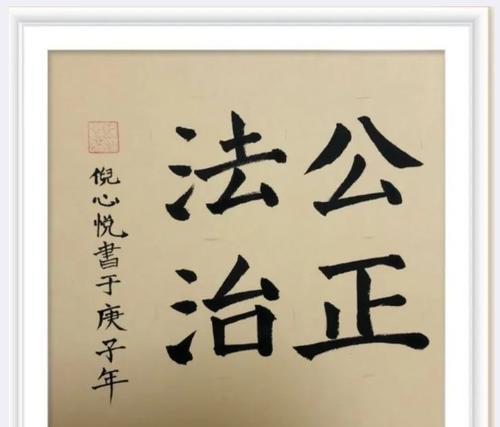 公正
法治
倪心悦書于庚子年